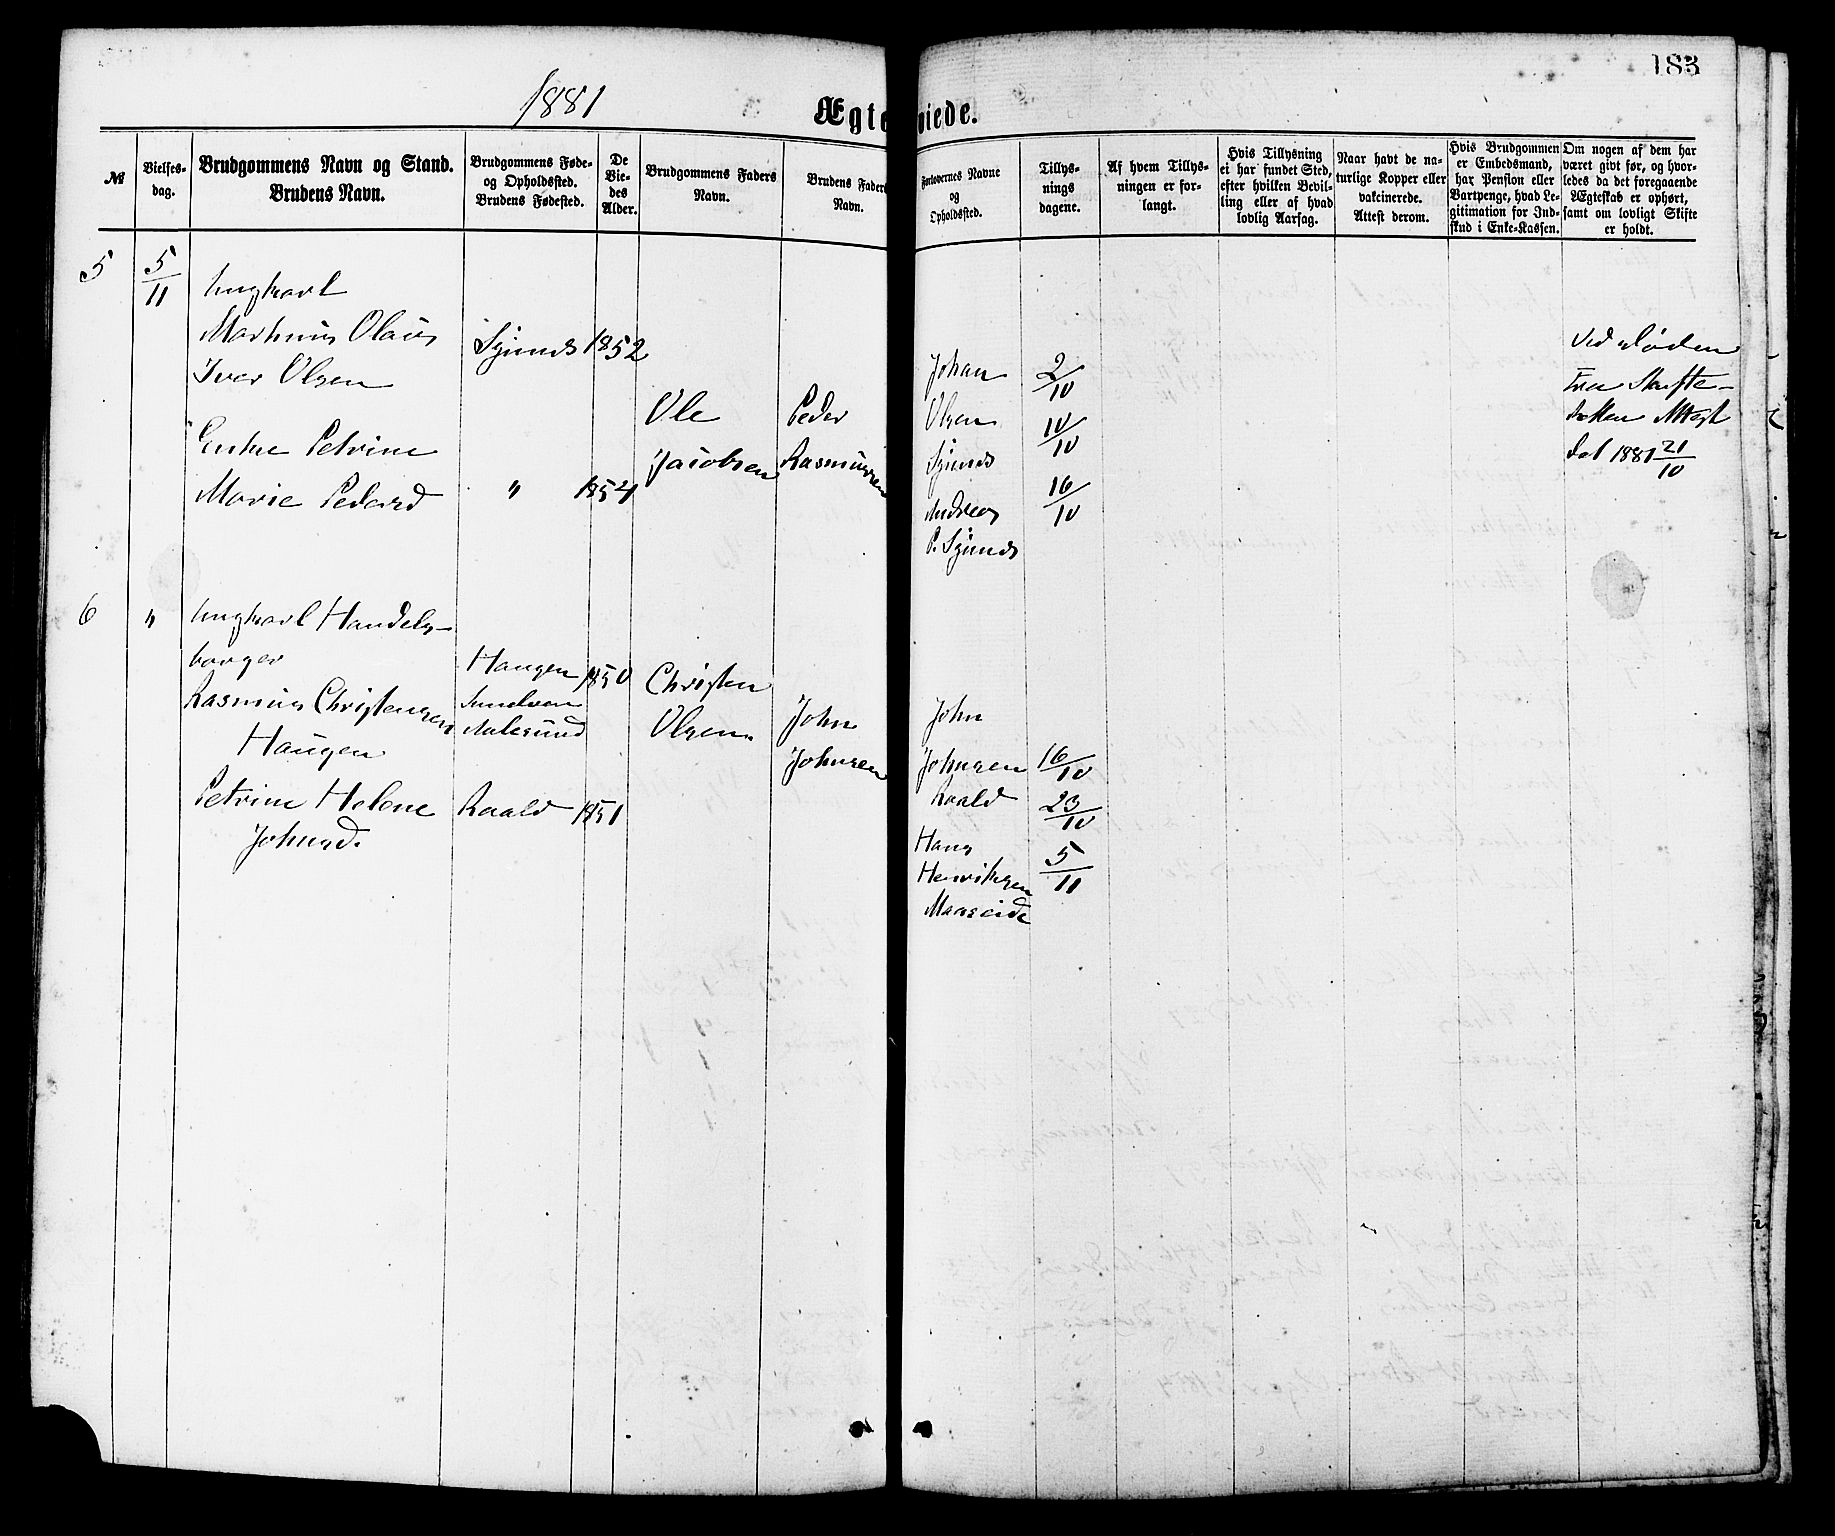 183
1881
Ægteviede.
№
Vielses-
dag.
Brudgommens Navn og Stand.
Brudens Navn.
Brudgommens Føde-
og Opholdssted.
Brudens Fødested.
De
Vie-
des
Alder.
Brudgommens Faders
Navn.
Brudens Faders
Navn.
Forlovernes Navne
og
Opholdssted.
Tillys-
nings
dagene.
Af hvem Tillys-
ningen er for-
langt.
Hvis Tillysning
ei har fundet Sted,
efter hvilken Bevil-
ling eller af hvad
lovlig Aarsag.
Naar havt de na-
turlige Kopper eller
vakcinerede.
Attest derom.
Hvis Brudgommen
er Embedsmand,
har Pension eller
Vartpenge, hvad Le-
gitimation for Ind-
skud i Enke-Kassen.
Om nogen af dem har
været givt før, og hvor-
ledes da det foregaaende
Ægteskab er ophørt,
samt om lovligt Skifte
er holdt.
5
5/11
Ungkarl
Marthinus Olaus
Iver Olsen
Enke Petrine
Marie Pedersd
1852
"
1854
Ole
Jacobsen
Peder
Rasmussen
Johan
Olsen
Andreas
P.
2/10
10/10
16/10
Ved Døden
Fra Skifte-
retten Attest
dat 1881 21/10
6
"
Ungkarl Handels-
borger
Rasmus Christensen
Haugen
Petrine Helene
Johnsd.
Haugen
Aalesund
Roald
1850
1851
Christen
Olsen.
John
Johnsen
John
Johnsen
Roald
Hans
Henriksen
Manseide
16/10
23/10
5/11